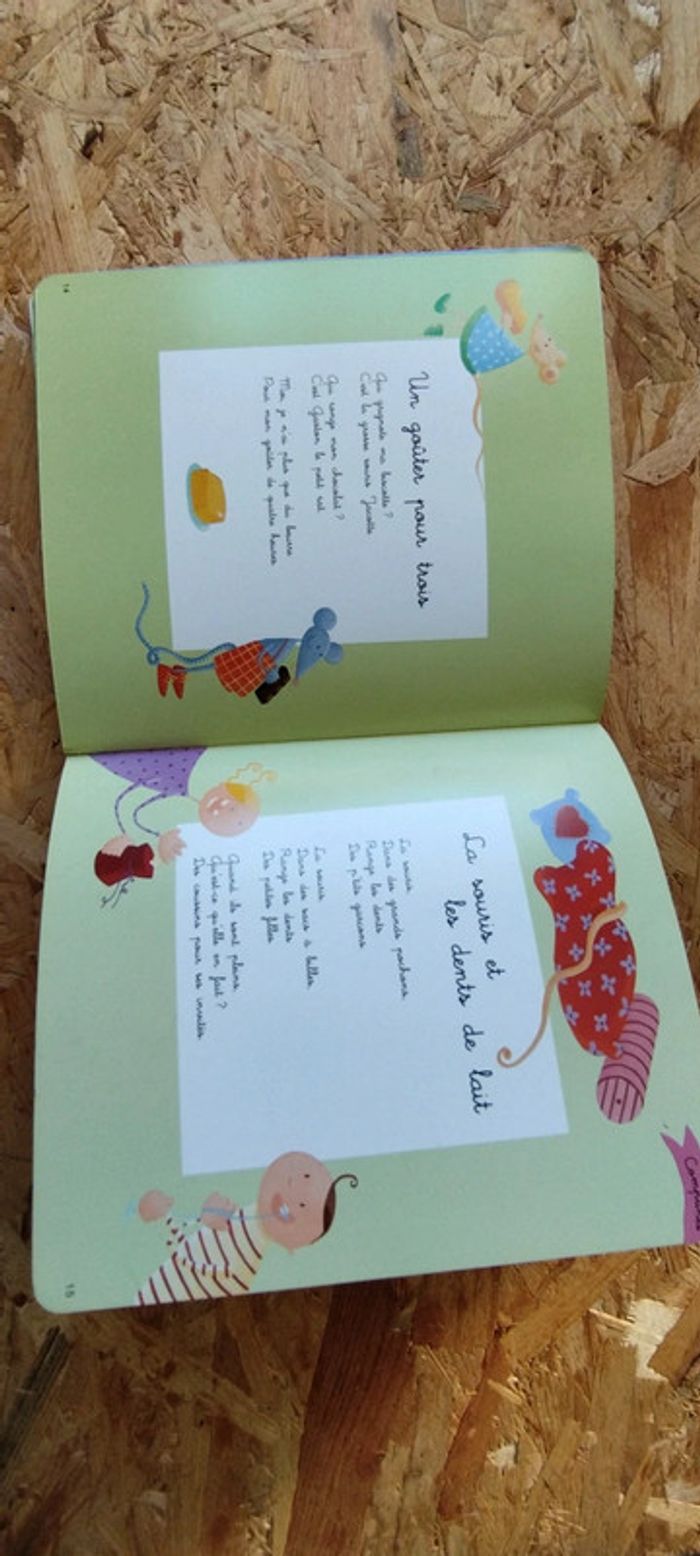 14
Un goûter pour trois
Qui grignote ma biscotte ?
C'est la grosse souris Jacotte
Qui ronge mon chocolat ?
C'est Gaston le petit rat
Moi, je n'ai plus que du beurre
Pour mon goûter de quatre heures
La souris et
les dents de lait
La souris
Dans des grands pochons
Range les dents
Des p'tits garçons
La souris
Dans des sacs à billes
Range les dents
Des petites filles
Quand ils sont pleins
Qu'est-ce qu'elle en fait ?
Des coussins pour ses invités
15